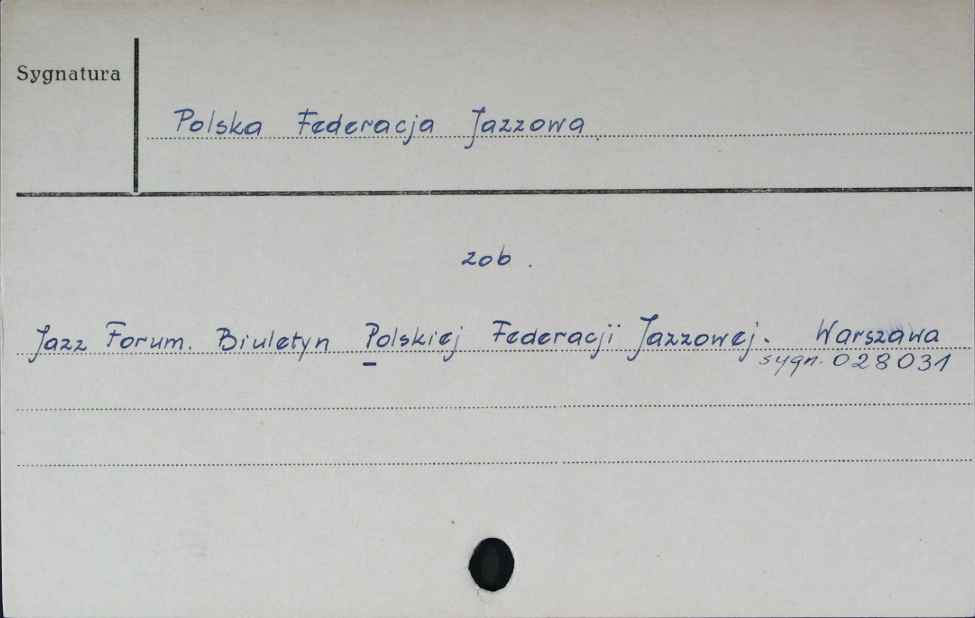 Sygnatura
Polska Federacja Jazzowa
zob.
Jazz Forum. Biuletyn Polskiej Federacji Jazzowej. Warszawa
sygn. 028031